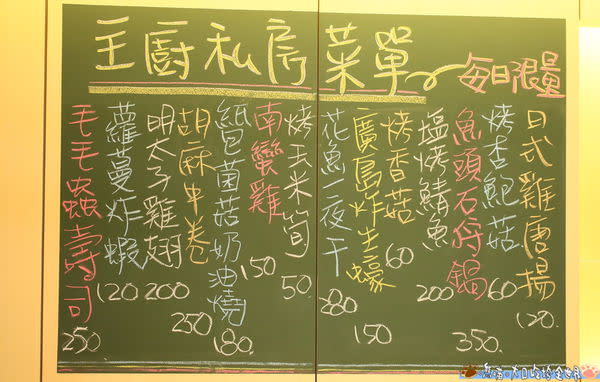 主廚私房菜單 每日限量
日式雞唐揚 120.
烤杏鮑菇 60
魚頭石狩鍋 350.
塩烤鯖魚 200
烤香菇 60
廣島炸生蠔 150
花魚一夜干 280
烤玉米筍 50.
南蠻雞 150
紙包菌菇奶油燒 180.
胡麻中卷 250
明太子雞翅 200
蘿蔓炸蝦 120
毛毛蟲壽司 250